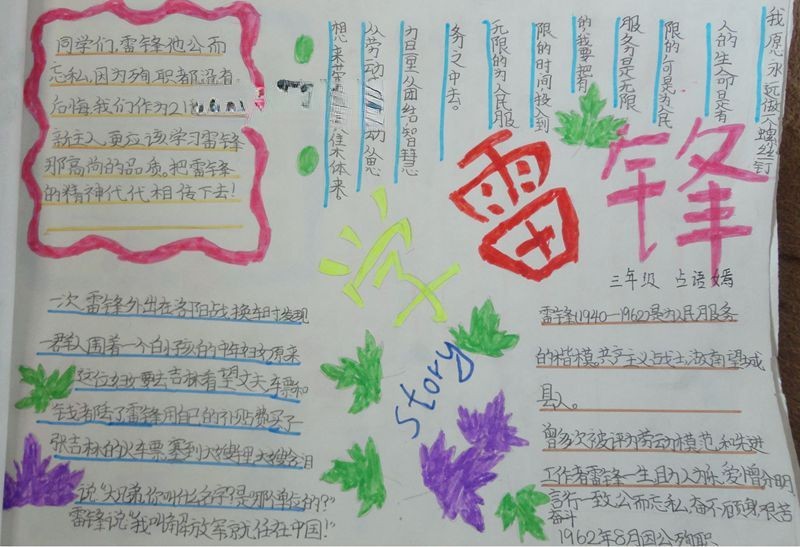 同学们,雷锋他公而
忘私,因为殉职都没有
后悔,我们作为21
新主人更应该学习雷锋
那高尚的品质。把雷锋
的精神代代相传下去!
我愿永远做个螺丝钉
人的生命是有
限的可是为人民
服务是无限
的,我要把有
限的时间,投入到
无限的为人民服
务之中去。
力量从团结智慧
从劳动 动从思
想来荣 集体来
学
雷
锋
三年级
story
一次雷锋外出在沈阳战换车时发现
一群人围着一个白小孩的中年妇女原来
这位妇女要去吉林看望丈夫车票和
钱都丢了雷锋用自己的补贴费买了一
张吉林的火车票塞到大嫂手里大嫂含泪
说"大兄弟你叫什么名字,是哪单位的?"
雷锋说"我叫解放军就住在中国!"
雷锋(1940—1962)是为人民服务
的楷模。共产主义战士,湖南望城
县人。
曾多次被评为劳动模范,和先进
工作者雷锋一生且为人方永,爱憎分明
言行一致,公而忘私,奋不顾身,艰苦
奋斗
1962年8月因公殉职